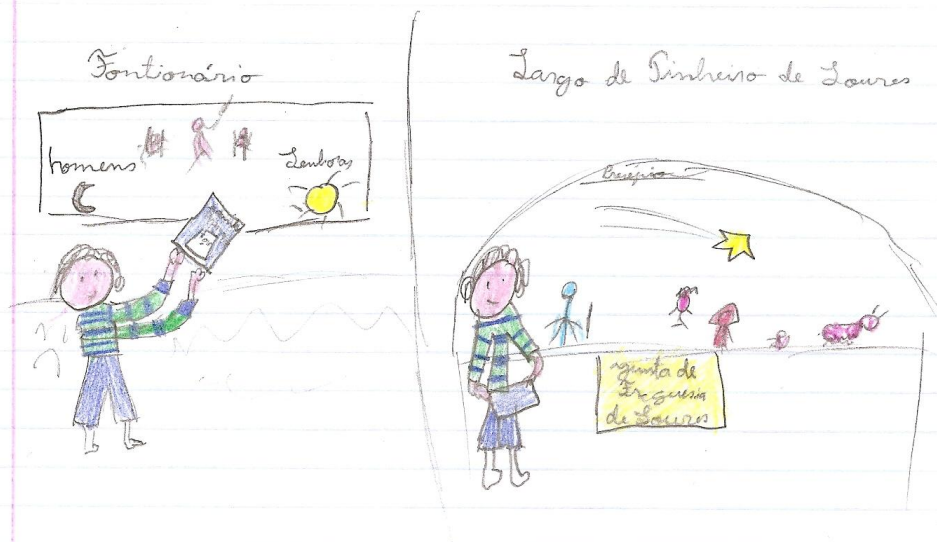 Fontionário
homens
Senhoras
Largo de Pinheiro de Loures
Presépio
yunta de
Freguesia
de Loures